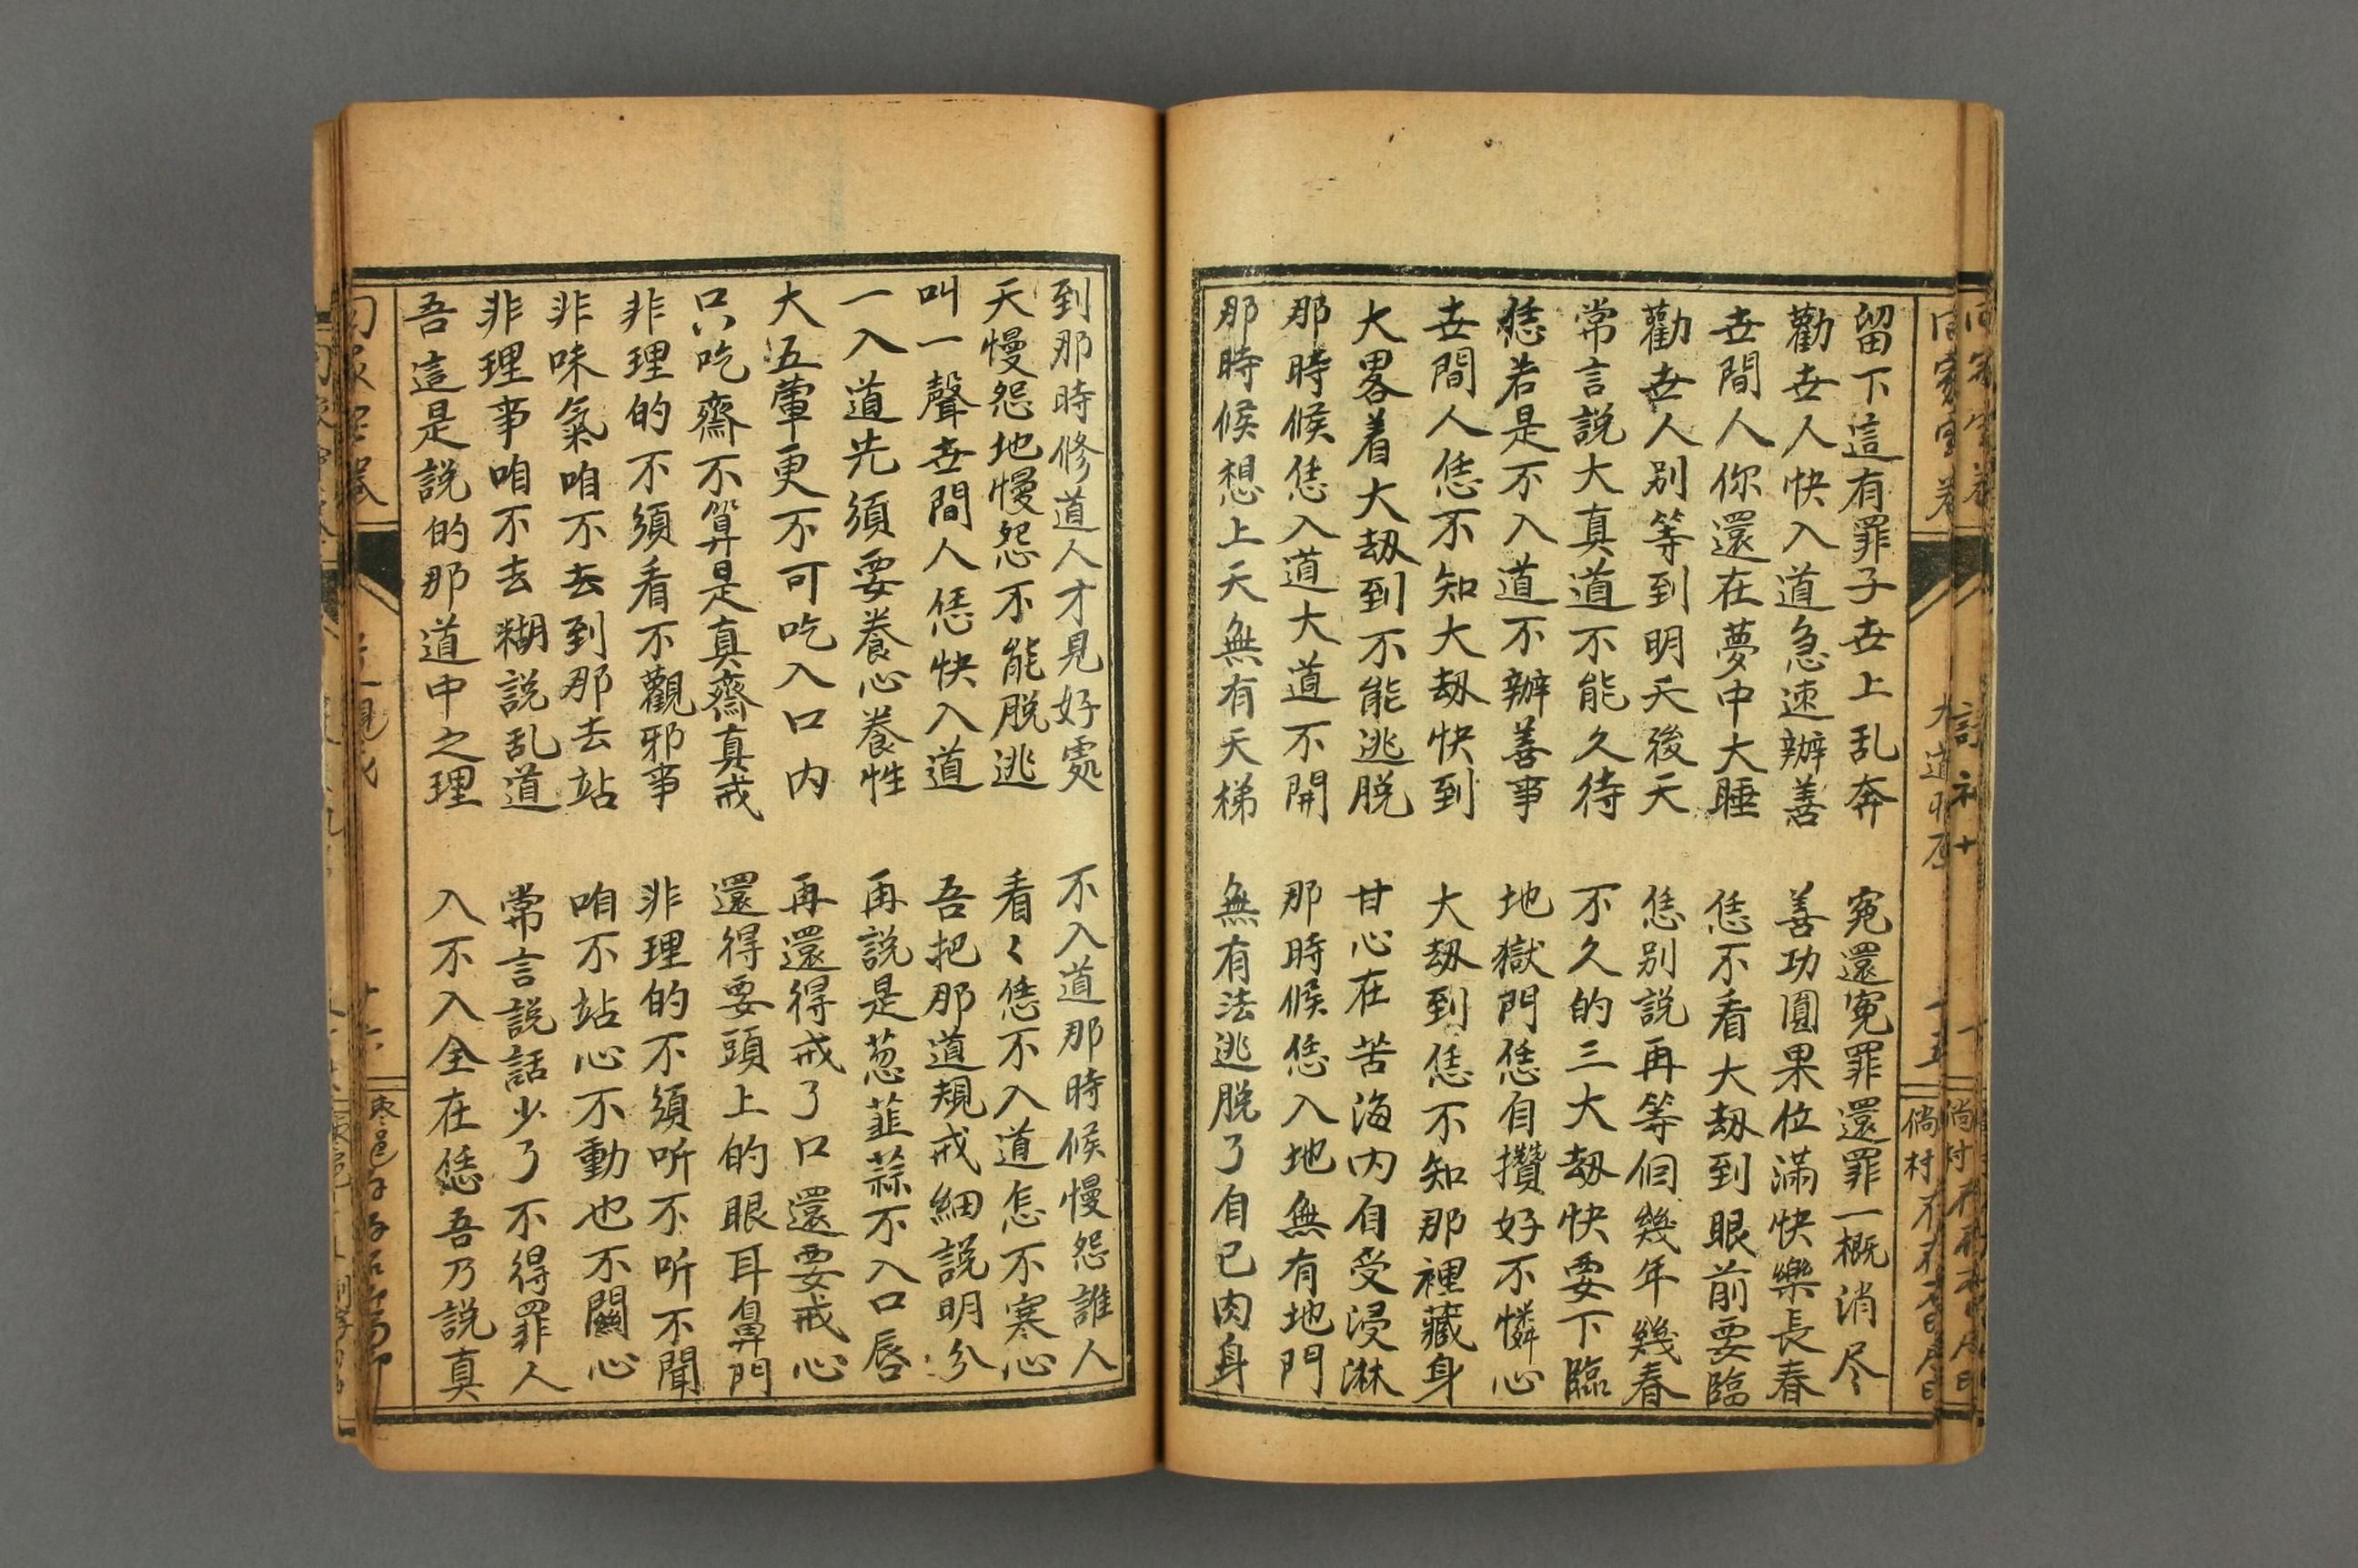 留下這有罪子世上乱奔　寃還寃罪還罪一概消尽
勸世人快入道急速辦善　善功圓果位滿快樂長春
世間人你還在夢中大睡　恁不看大刼到眼前要臨
勸世人别等到明天後天　恁别說再等個幾年幾春
常言説大真道不能久待　不久的三大刼快要下臨
恁若是不入道不辦善事　地獄門恁自攢好不憐心
世間人恁不知大刼快到　大刼到恁不知那裡藏身
大畧着大刼到不能逃脱　甘心在苦海内自受浸淋
那時候恁入道大道不開　那時候恁入地無有地門
那時候想上天無有天梯　無有法逃脱了自己肉身
到那時修道人才見好處　不入道那時候慢怨誰人
天慢怨地慢怨不能脱逃　看〻恁不入道怎不寒心
叫一聲世間人恁快入道　吾把那道規戒細説明分
一入道先須要養心養性　再説是葱韮蒜不入口唇
大五葷更不可吃入口内　再還得戒了口還要戒心
只吃齋不算是真齋真戒　還得要頭上的眼耳鼻門
非理的不須看不觀邪事　非理的不須听不听不聞
非味氣咱不去到那去站　咱不站心不動也不關心
非理事咱不去糊説乱道　常言説話少了不得罪人
吾這是説的那道中之理　入不入全在恁吾乃説真